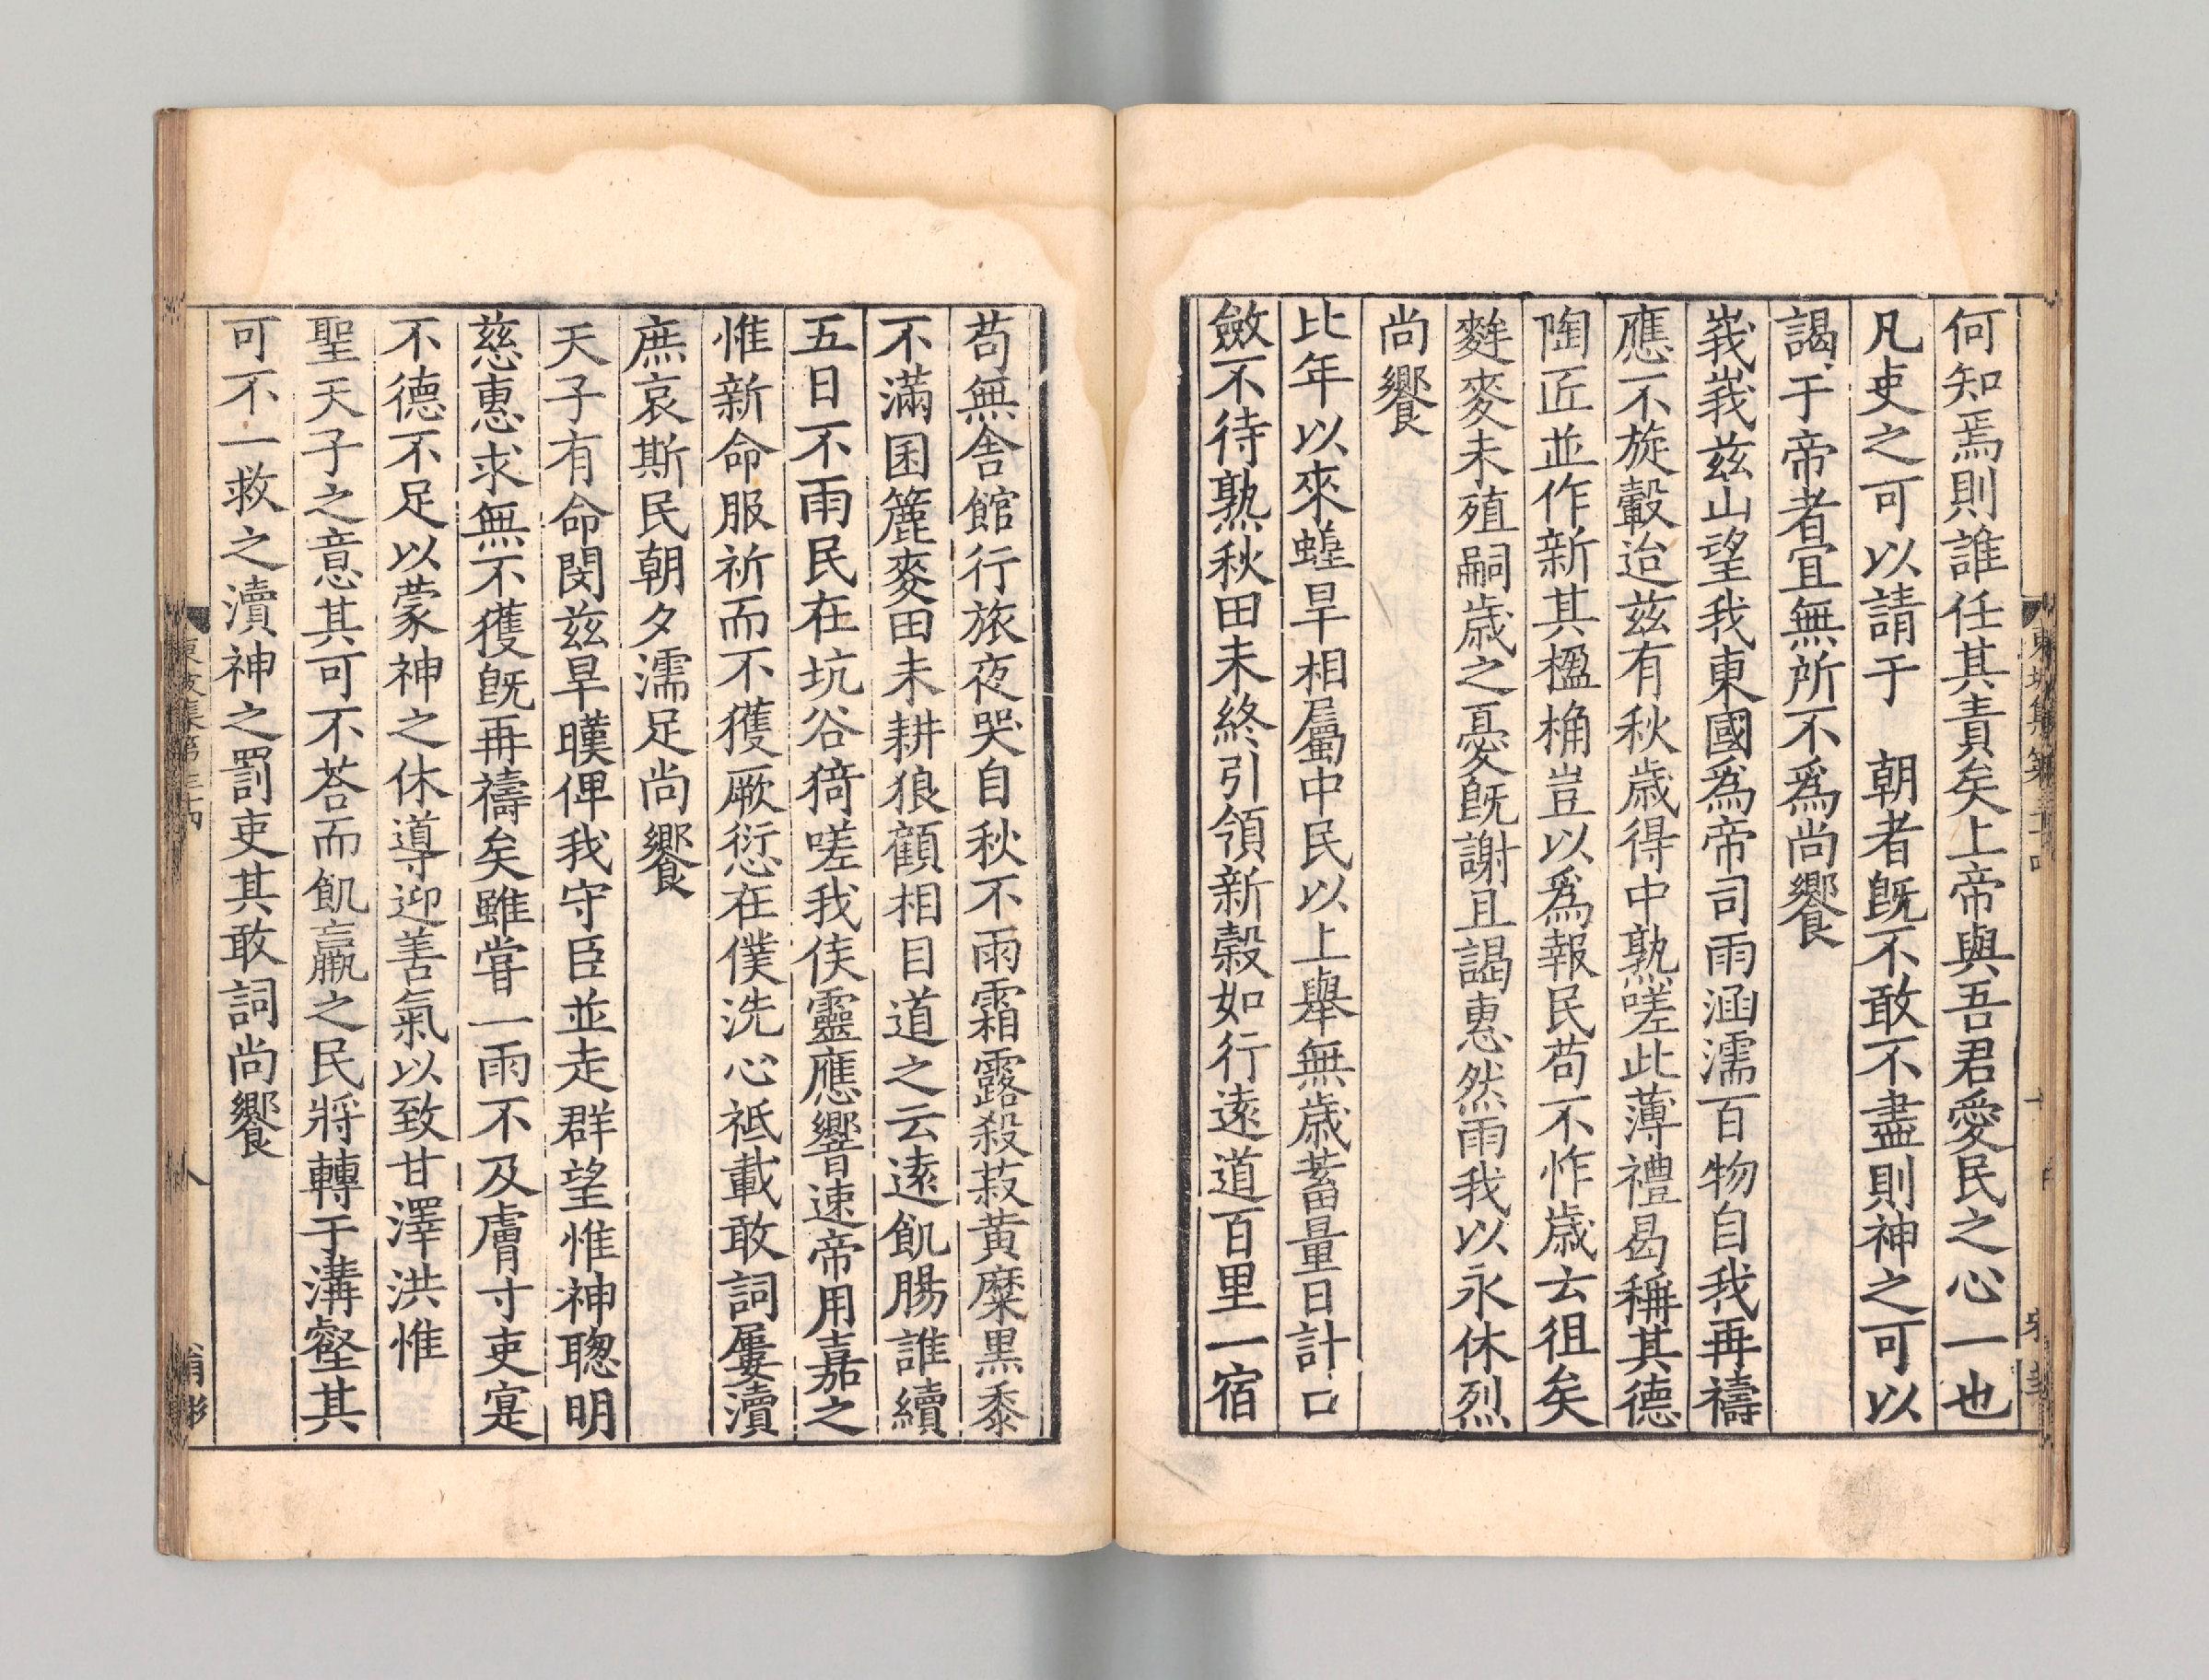 何知焉則誰任其責矣上帝與吾君愛民之心一也
凡吏之可以請于　朝者旣不敢不盡則神之可以
謁于帝者宜無所不爲尚饗
峩峩兹山望我東國爲帝司雨涵濡百物自我再禱
應不旋轂迨兹有秋歳得中熟嗟此薄禮曷稱其德
陶匠並作新其楹桷豈以爲報民苟不怍歳云徂矣
麰麥未殖嗣歳之憂旣謝且謁惠然雨我以永休烈
尚饗
比年以來蝗旱相屬中民以上舉無歳蓄量日計口
斂不待熟秋田未終引領新穀如行逺道百里一宿
苟無舍館行旅夜哭自秋不雨霜露殺菽黄糜黒黍
不滿囷簏麥田未耕狼顧相目道之云逺飢腸誰續
五日不雨民在坑谷猗嗟我侯靈應響速帝用嘉之
惟新命服祈而不獲厥愆在僕洗心祗載敢詞屢瀆
庶哀斯民朝夕濡足尚饗
天子有命閔兹旱暵俾我守臣並走群望惟神聰明
慈惠求無不獲旣再禱矣雖嘗一雨不及膚寸吏寔
不德不足以蒙神之休導迎善氣以致甘澤洪惟
聖天子之意其可不荅而飢羸之民將轉于溝壑其
可不一救之瀆神之罰吏其敢詞尚饗
東坡集第三四
八